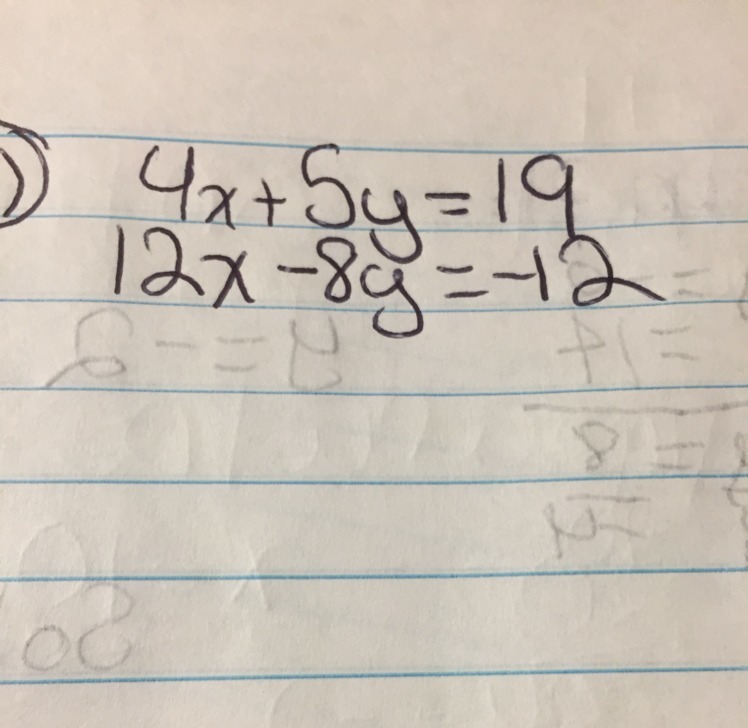 ) 4x+5y=19
12x-8y=-12